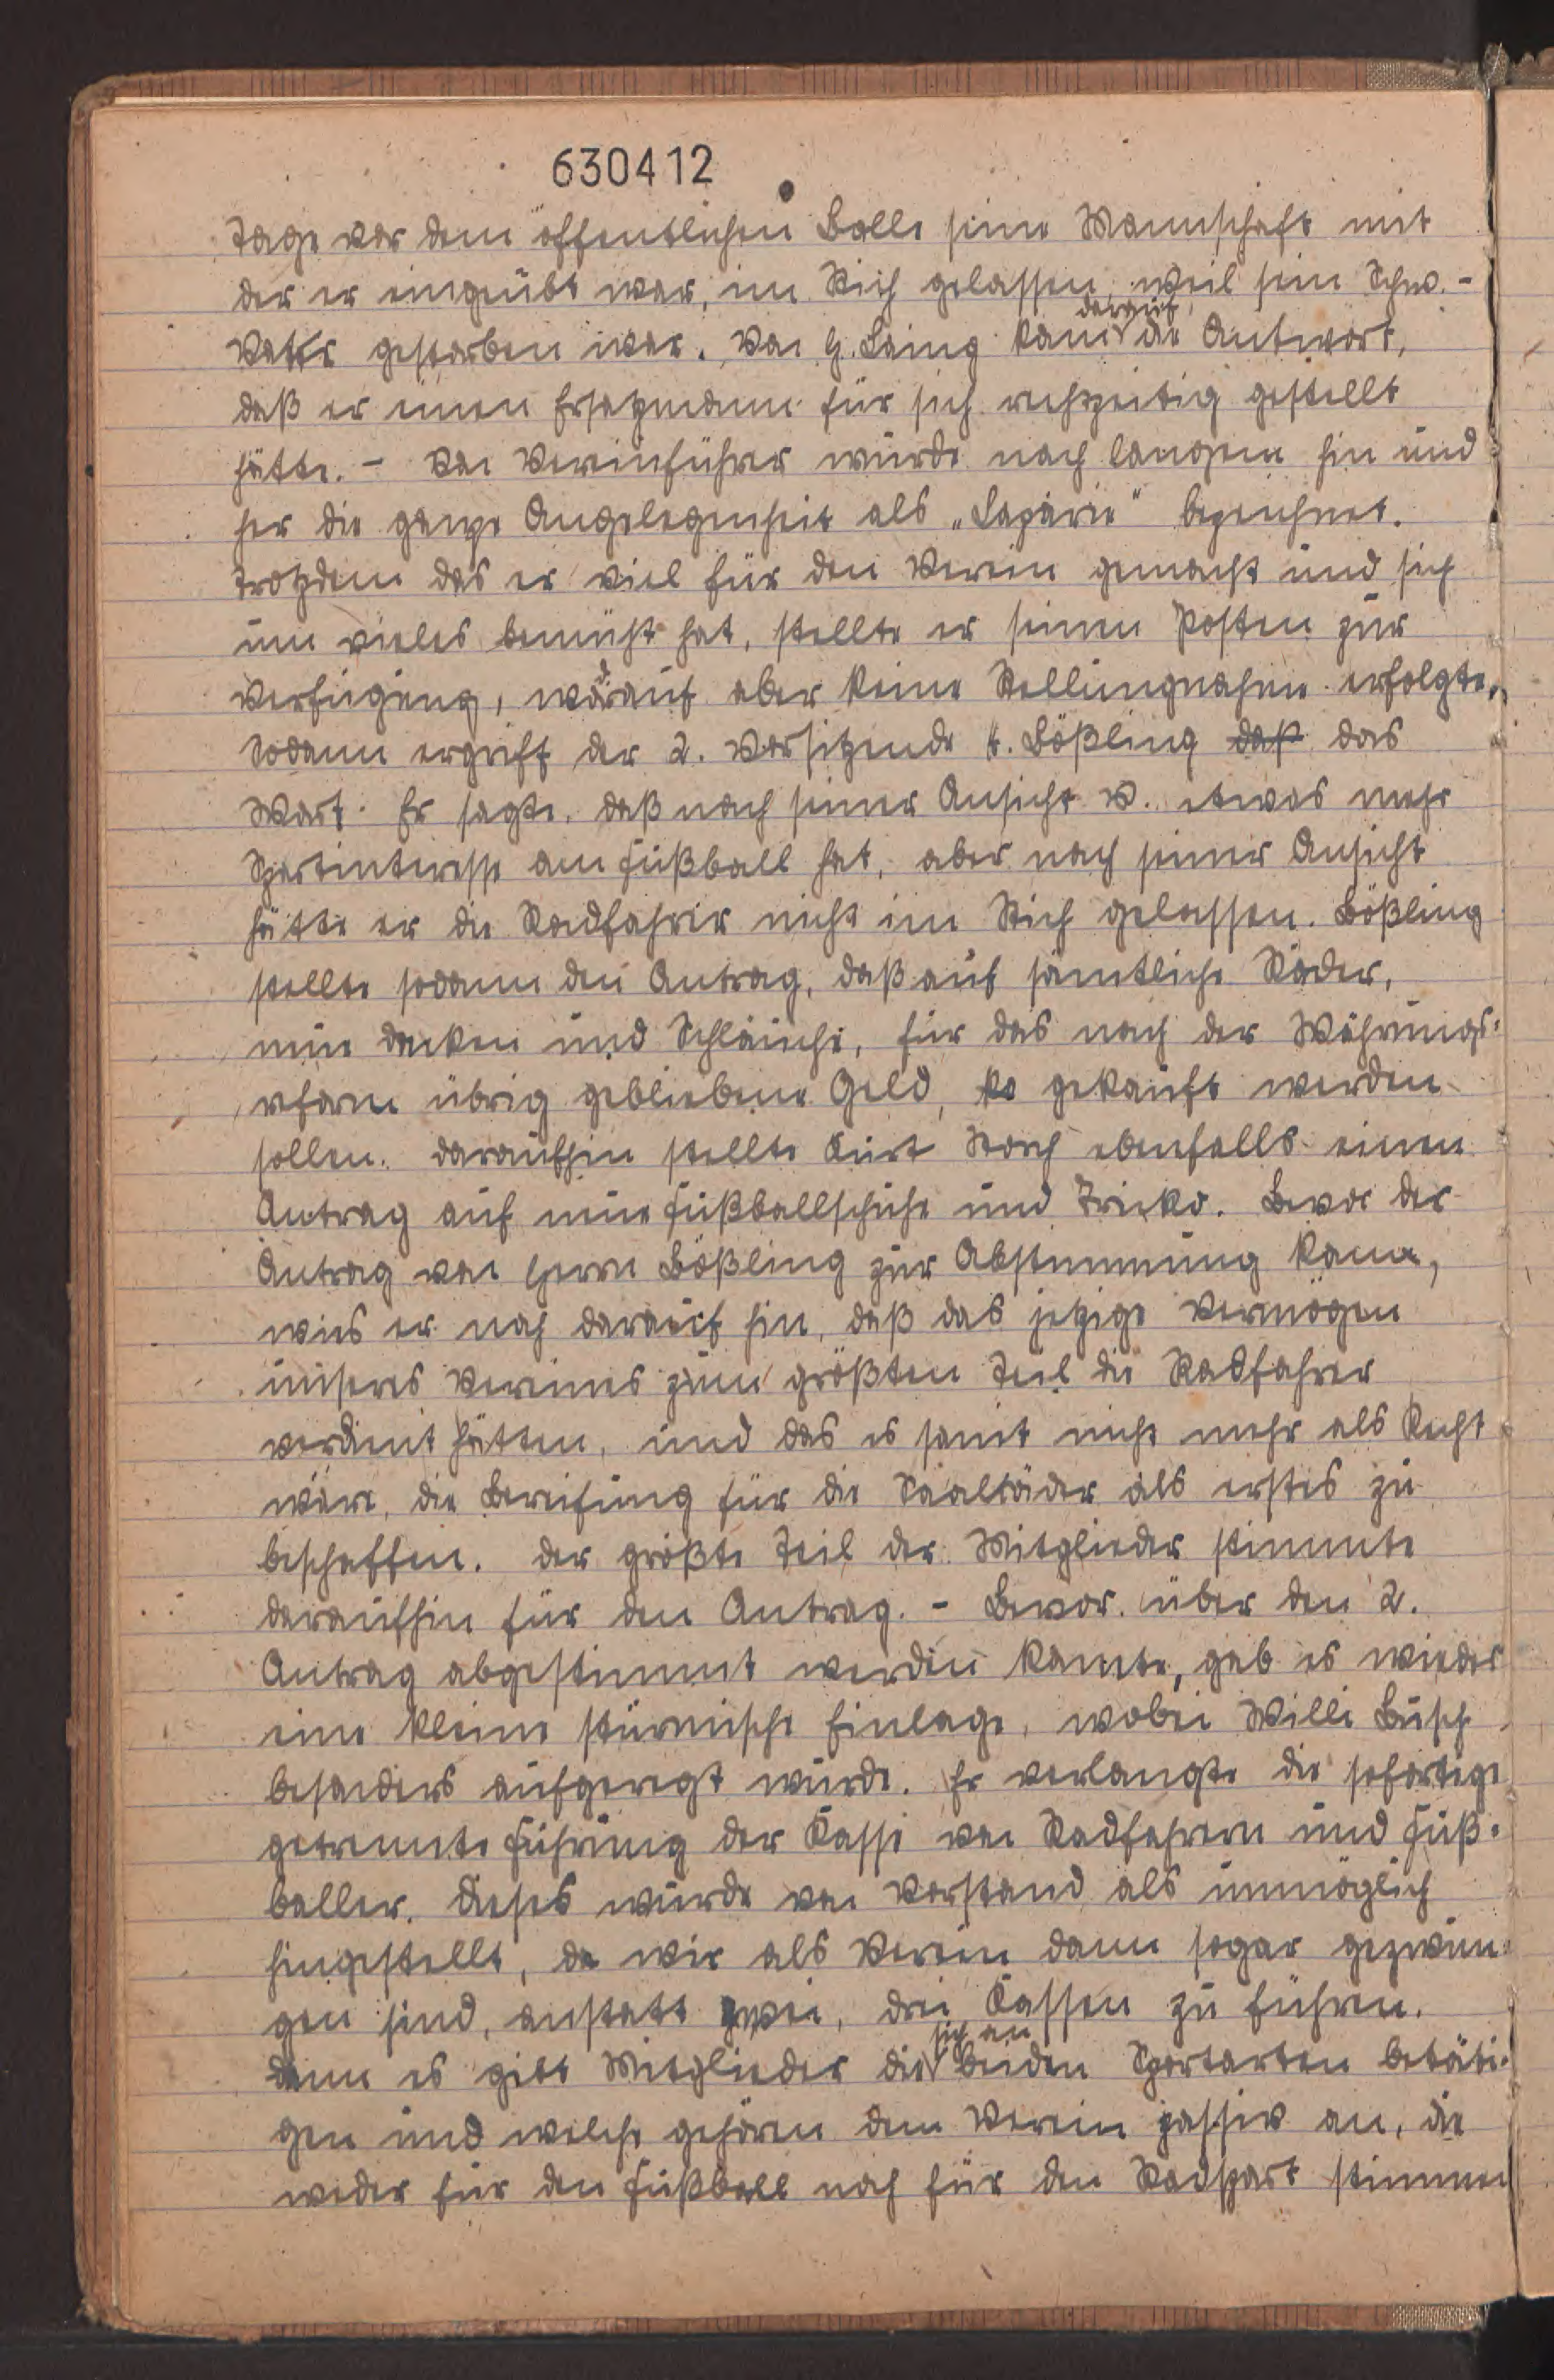 630412
Tage vor dem öffentlichen Balle seine Mannschaft mit
der er eingeübt war, im Stich gelassen, weil sein Schw.-
Vater gestorben war. Von H. Laing kam darauf die Antwort,
daß er einen Ersatzmann für sich rechtzeitig gestellt
hätte. - Von Vereinführer wurde nach langem hin und
her die ganze Angelegenheit als „Laparie" bezeichnet.
Trotzdem das er viel für den Verein gemacht und sich
um vieles bemüht hat, stellte er seinen Posten zur
Verfügung, worauf aber keine Stellungnahme erfolgte.
Sodann ergriff der 2. Vorsitzende H. Bößling daß das
Wort. Er sagte, daß nach seiner Ansicht W. etwas mehr
Sportinteresse am Fußball hat, aber nach seiner Ansicht
hätte er die Radfahrer nicht im Stich gelassen. Bößling
stellte sodann den Antrag, daß auf sämtliche Räder,
neue Decken und Schläuche, für das nach der Währungs-
reform übrig gebliebene Geld, gekauft werden
sollen. Daraufhin stellte Kurt Storch ebenfalls einen
Antrag auf neue Fußballschuhe und Triko. Bevor der
Antrag von Herrn Bößling zur Abstimmung kam,
wies er noch darauf hin, daß das jetzige Vermögen
unseres Vereines zum größten Teil die Radfahrer
verdient hätten, und das es somit nicht mehr als Recht
wäre, die Bereifung für die Saalräder als erstes zu
beschaffen. Der größte Teil der Mitglieder stimmte
daraufhin für den Antrag. - Bevor über den 2.
Antrag abgestimmt werden konnte, gab es wieder
eine kleine stürmische Einlage, wobei Willi Busch
besonders aufgeregt wurde. Er verlangte die sofortige
getrennte Führung der Kasse von Radfahrern und Fuß-
baller. Dieses wurde von Vorstand als unmöglich
hingestellt, da wir als Verein dann sogar gezwun-
gen sind, anstatt zwei, drei Kassen zu führen.
denn es gibt Mitglieder die sich an beiden Sportarten betäti-
gen und welche gehören dem Verein passiv an, die
weder für den Fußball noch für den Radsport stimmen